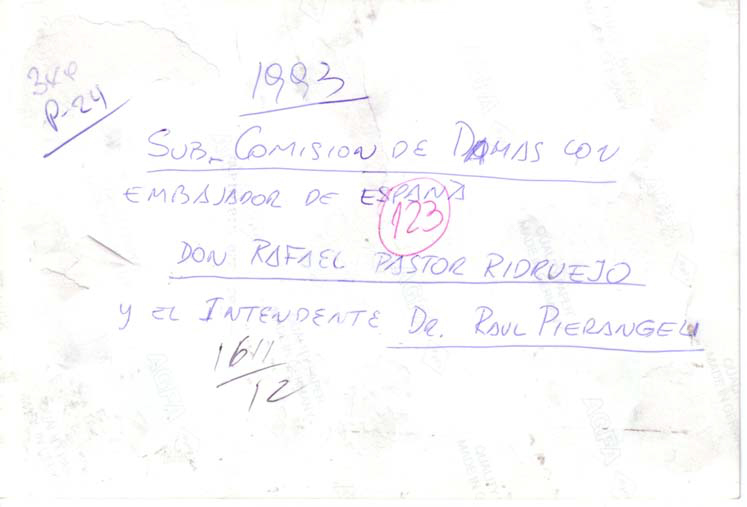 1993
344
P-24
SUB-COMISION DE DAMAS CON
EMBAJADOR DE ESPAÑA
123
DON RAFAEL PASTOR RIDRUEJO
Y EL INTENDENTE DR. RAUL PIERANGELI
1611
12
AGFA
AGFA